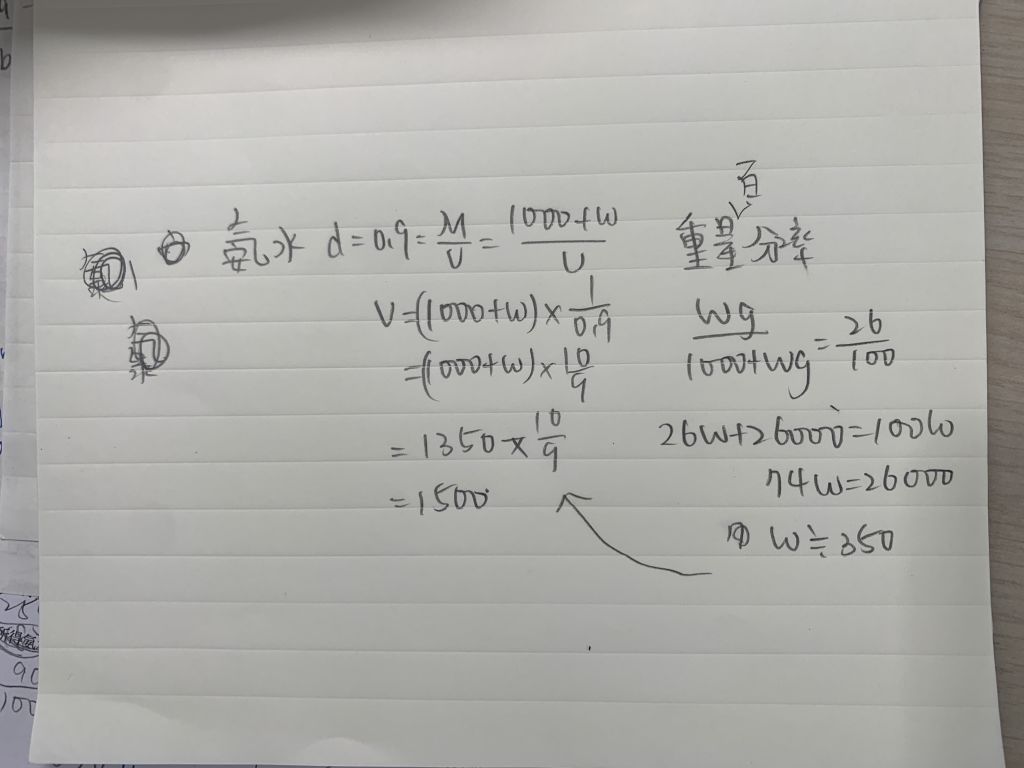 百
氨水 d=0.9=M/V=1000+W/V
重量分率
V=(1000+W)×1/0.9
=(1000+W)×10/9
=1350×10/9
=1500
Wg/1000+Wg=26/100
26W+26000=100W
74W=26000
W≒350
90
100